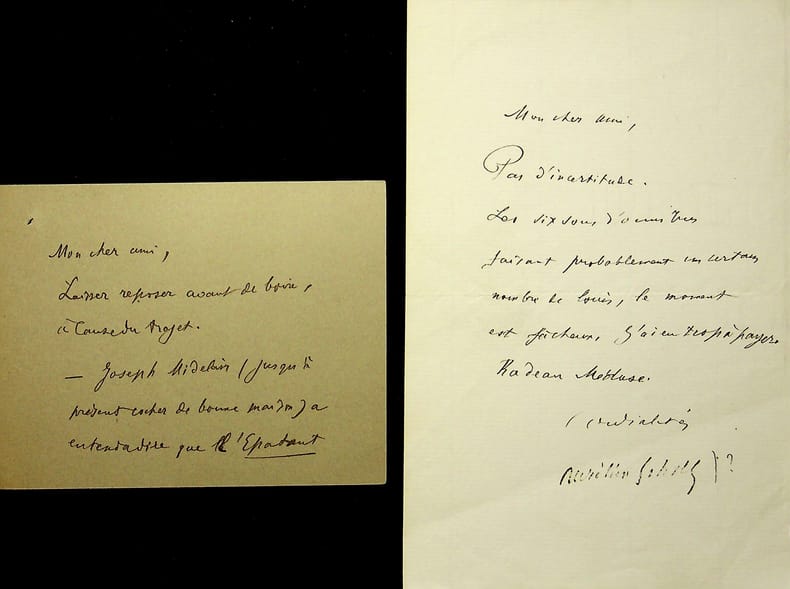 Mon cher ami,
Laisser reposer avant de boire,
à Cause du trajet.
— Joseph (jusqu'à
présent cocher de bonne maison) a
entendu dire que l'Epatant
Mon cher ami,
Pas d'incertitude.
Les six sous d'omnibus
faisant probablement un certain
nombre de louis, le moment
est fâcheux. J'ai eu trop à payer.
Radeau Méduse.
Cordialités
Aurélien Scholl ?